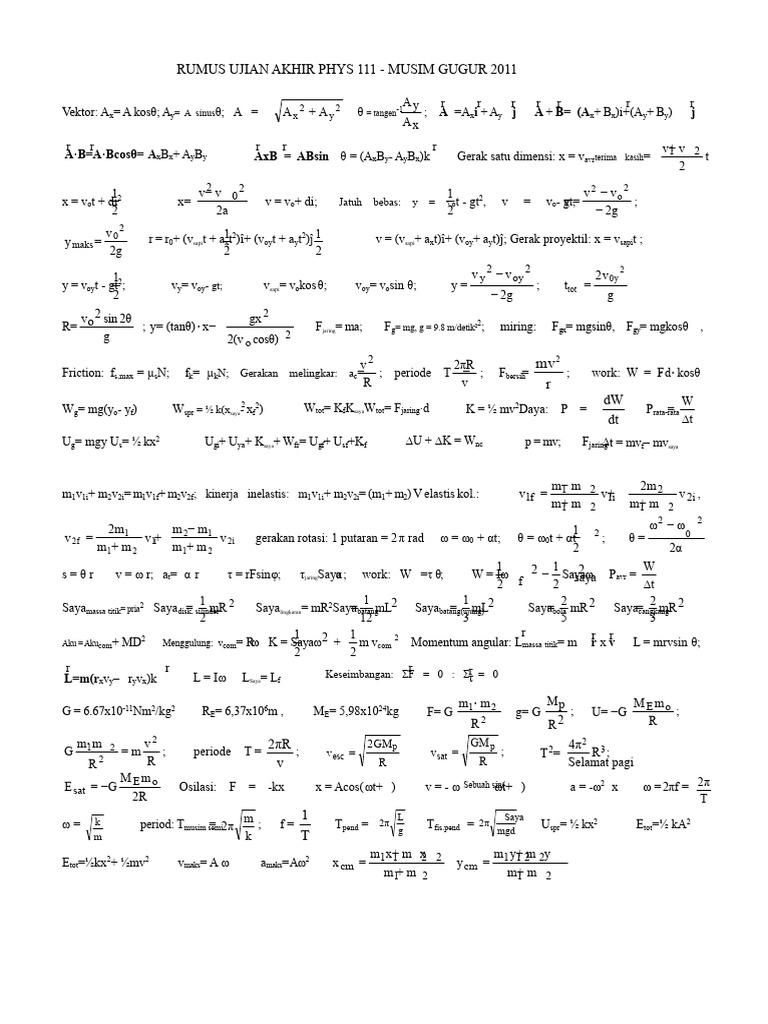 RUMUS UJIAN AKHIR PHYS 111 - MUSIM GUGUR 2011
Vektor: Aₓ= A kosθ; Aᵧ= A sinusθ; A = √(Aₓ² + Aᵧ²) θ = tangen⁻¹ Aᵧ/Aₓ ; A = Aₓi + Aᵧ j A + B= (Aₓ+ Bₓ)i+(Aᵧ+ Bᵧ) j
A·B=A·Bcosθ= AₓBₓ+ AᵧBᵧ AxB = ABsin θ = (AₓBᵧ- AᵧBₓ)k Gerak satu dimensi: x = v_avr terima kasih= (v₁+ v₂)/2 t
x = vₒt + di 1/2 t² x= (v²− v₀²)/2a v = vₒ+ di; Jatuh bebas: y = vₒt - 1/2 gt², v = vₒ- gt; y= (v² − vₒ²)/− 2g ;
y_maks = v₀²/2g r = r₀+ (v_sapi t + 1/2 aₓt²)î+ (v_oy t + 1/2 aᵧt²)ĵ v = (v_sapi+ aₓt)î+ (v_oy+ aᵧt)ĵ; Gerak proyektil: x = v_sapi t ;
y = v_oy t - 1/2 gt²; vᵧ= v_oy- gt; v_sapi= vₒkosθ; v_oy= vₒsin θ; y = (vᵧ² − v_oy²)/− 2g ; t_tot = 2v₀ᵧ/g
R= vₒ² sin 2θ/g ; y= (tanθ)· x− gx²/2(vₒ cosθ)² F_jaring= ma; F_g= mg, g = 9.8 m/detik²; miring: F_gx= mgsinθ, F_gy= mgkosθ ,
Friction: f_s.max = μₛN; fₖ= μₖN; Gerakan melingkar: a_c= v²/R ; periode T = 2πR/v ; F_bersih= mv²/r ; work: W = F·d· kosθ
W_g= mg(yₒ- y_f) W_spr = ½ k(x_saya² x_f²) W_tot= K_f K_saya W_tot= F_jaring·d K = ½ mv² Daya: P = dW/dt P_rata-rata= W/Δt
U_g= mgy Uₛ= ½ kx² U_gi+ U_ya+ K_saya+ W_fr= U_gf+ U_sf+K_f ΔU + ΔK = W_nc p = mv; F_jaring Δt = mv_f− mv_saya
m₁v₁ᵢ+ m₂v₂ᵢ= m₁v₁f+ m₂v₂f; kinerja inelastis: m₁v₁ᵢ+ m₂v₂ᵢ= (m₁+ m₂) V elastis kol.: v₁f = (m₁− m₂)/(m₁+ m₂) v₁ᵢ + 2m₂/(m₁+ m₂) v₂ᵢ ,
v₂f = 2m₁/(m₁+ m₂) v₁ᵢ+ (m₂− m₁)/(m₁+ m₂) v₂ᵢ gerakan rotasi: 1 putaran = 2 π rad ω = ω₀ + αt; θ = ω₀t + 1/2 αt² ; θ = (ω² − ωₒ²)/2α
s = θ r v = ω r; aₜ= α r τ = rFsinφ; τ_jaring Sayaα ; work: W =τ θ; W = 1/2 Iω_f² − 1/2 Sayaω²_saya P_avr = W/Δt
Saya_massa titik= pria² Saya_disk. = 1/2 mR² Saya_lingkaran= mR² Saya_batang= 1/12 mL² Saya_batang(ujung)= 1/3 mL² Saya_bola= 2/5 mR² Saya_cangkang= 2/3 mR²
Aku =Aku_com+ MD² Menggulung: v_com= Rω K = 1/2 Sayaω² + 1/2 m v_com² Momentum angular: L_massa titik= m r x v L = mrvsin θ;
L=m(rₓvᵧ− rᵧvₓ)k L = Iω L_Saya= L_f Keseimbangan: ΣF = 0 : Στ = 0
G = 6.67x10⁻¹¹Nm²/kg² R_E= 6,37x10⁶m , M_E= 5,98x10²⁴kg F= G m₁· m₂/R² g= G M_p/R² ; U= −G M_E mₒ/R ;
G m₁m₂/R² = m v²/R ; periode T = 2πR/v ; v_esc = √(2GM_p/R) v_sat = √(GM_p/R) ; T²= 4π²/ R³;
Selamat pagi
E_sat = −G M_E mₒ/2R Osilasi: F = -kx x = Acos( ωt+ ) v = - ω Sebuah sin( ωt+ ) a = -ω² x ω =2πf = 2π/T
ω = √(k/m) period: T_musim semi = 2π √(m/k) ; f = 1/T T_pend = 2π √(L/g) T_fis.pend = 2π √(Saya/mgd) U_spr= ½ kx² E_tot=½ kA²
E_tot=½kx²+ ½mv² v_maks= A ω a_maks=Aω² x_cm = (m₁x₁+ m₂x₂)/(m₁+ m₂) y_cm = (m₁y₁+ m₂y₂)/(m₁+ m₂)